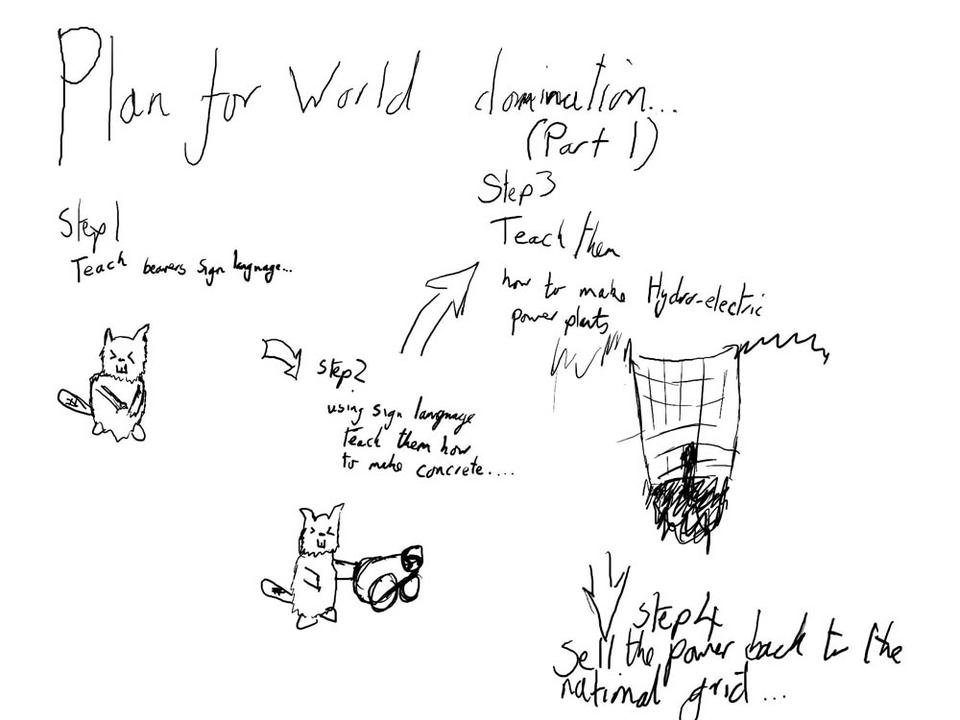 Plan for World domination...
(Part 1)
Step 1
Teach beavers sign language...
Step 2
using sign language
Teach them how
to make concrete....
Step 3
Teach them
how to make Hydro-electric
power plants
Step 4
Sell the power back to the
national grid...